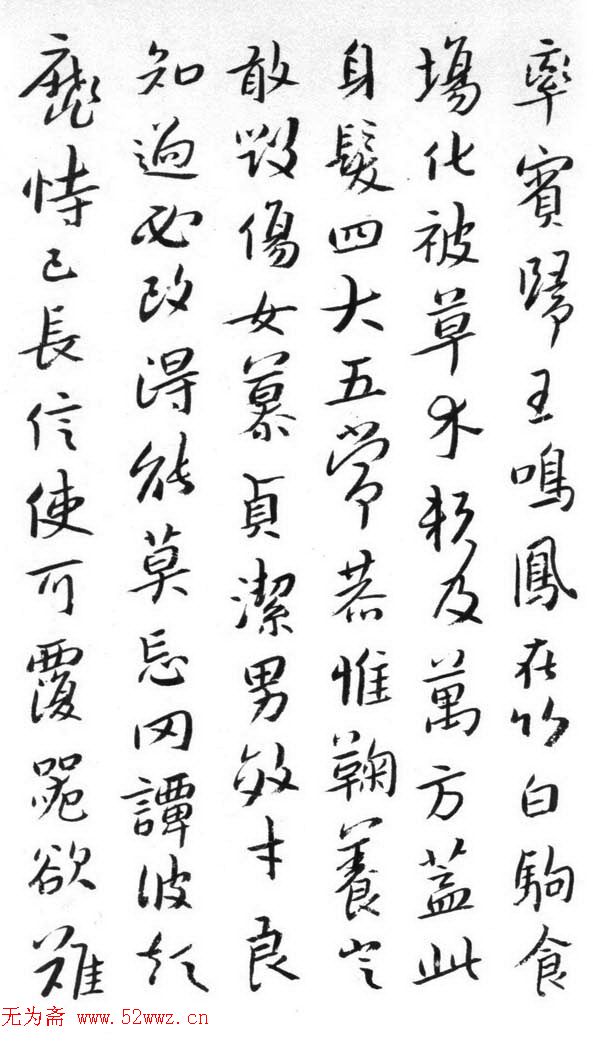 率賓歸王鳴鳳在竹白駒食
場化被草木賴及萬方蓋此
身髮四大五常恭惟鞠養豈
敢毀傷女慕貞潔男效才良
知過必改得能莫忘罔譚彼短
靡恃己長信使可覆器欲難
无为斋 www.52wwz.cn